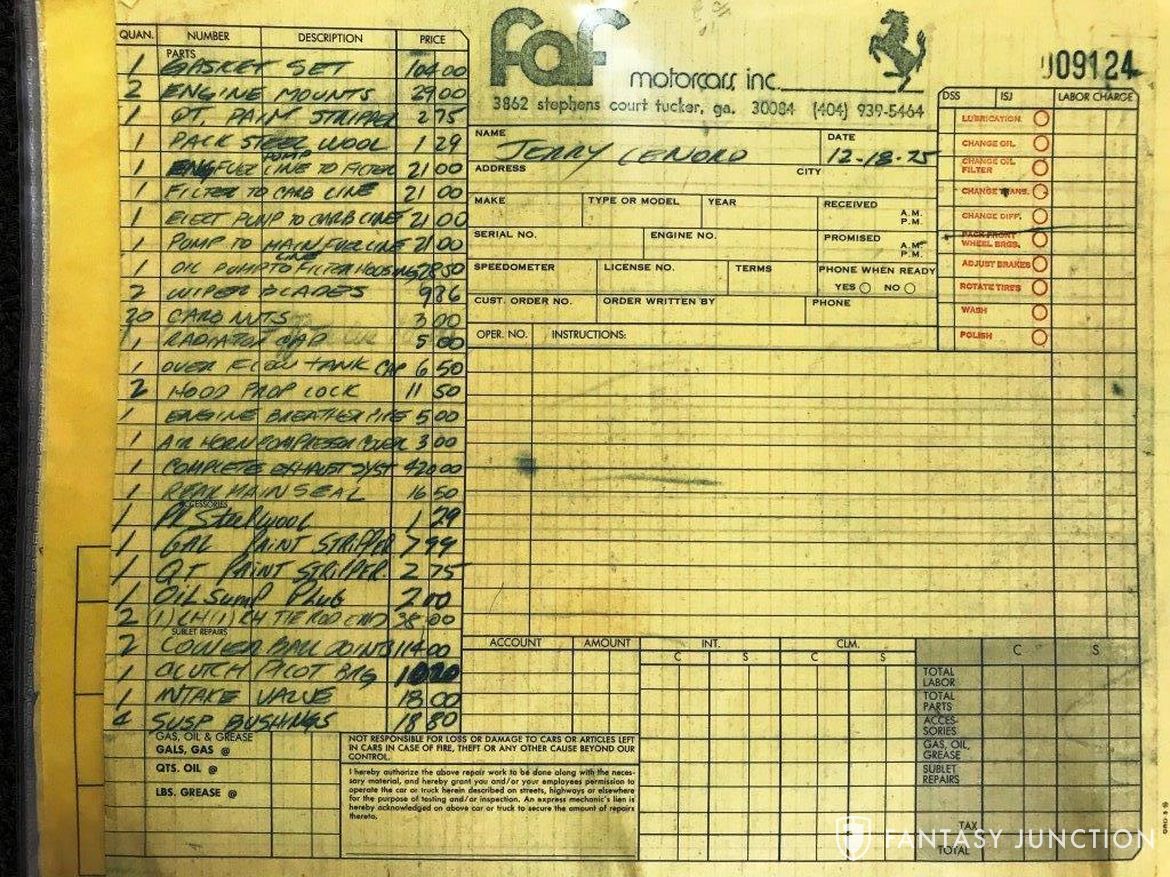 QUAN. NUMBER DESCRIPTION PRICE
PARTS
1 GASKET SET 104 00
2 ENGINE MOUNTS 29 00
1 QT. PAINT STRIPPER 2 75
1 PACK STEEL WOOL 1 29
PUMP
1 FUEL LINE TO FILTER 21 00
1 FILTER TO CARB LINE 21 00
1 ELECT PUMP TO CARB LINE 21 00
1 PUMP TO MAIN FUEL LINE 21 00
LINE
1 OIL PUMP TO FILTER HOUSING 28 50
2 WIPER BLADES 9 86
20 CARB NUTS 3 00
1 RADIATOR CAP 5 00
1 OVER FLOW TANK CAP 6 50
2 HOOD PROP LOCK 11 50
1 ENGINE BREATHER PIPE 5 00
1 AIR HORN COMPRESSER COVER 3 00
1 COMPLETE EXHAUST SYST 420 00
1 REAR MAIN SEAL 16 50
ACCESSORIES
1 Pk Steel wool 1 29
1 GAL PAINT STRIPPER 7 99
1 QT PAINT STRIPPER 2 75
1 Oil Sump Plug 2 00
2 (1) LH (1) RH TIE ROD END 38 00
SUBLET REPAIRS
2 LOWER BALL JOINTS 114 00
1 CLUTCH PILOT BRG
1 INTAKE VALUE 18.00
4 SUSP BUSHINGS 18 80
GAS, OIL & GREASE
GALS, GAS @
QTS. OIL @
LBS. GREASE @
faf motorcars, inc.
3862 stephens court tucker, ga. 30084 (404) 939-5464
009124
NAME JERRY LENORD DATE 12-18-75
ADDRESS CITY
MAKE TYPE OR MODEL YEAR RECEIVED A.M. P.M.
SERIAL NO. ENGINE NO. PROMISED A.M. P.M.
SPEEDOMETER LICENSE NO. TERMS PHONE WHEN READY
YES NO
CUST. ORDER NO. ORDER WRITTEN BY PHONE
OPER. NO. INSTRUCTIONS:
DSS ISJ LABOR CHARGE
LUBRICATION
CHANGE OIL
CHANGE OIL FILTER
CHANGE TRANS.
CHANGE DIFF.
PACK FRONT WHEEL BRGS.
ADJUST BRAKES
ROTATE TIRES
WASH
POLISH
ACCOUNT AMOUNT INT. CLM.
C S C S C S
TOTAL LABOR
TOTAL PARTS
ACCES-
SORIES
GAS, OIL, GREASE
SUBLET REPAIRS
TAX
TOTAL
NOT RESPONSIBLE FOR LOSS OR DAMAGE TO CARS OR ARTICLES LEFT
IN CARS IN CASE OF FIRE, THEFT OR ANY OTHER CAUSE BEYOND OUR
CONTROL.
I hereby authorize the above repair work to be done along with the neces-
sary material, and hereby grant you and/or your employees permission to
operate the car or truck herein described on streets, highways or elsewhere
for the purpose of testing and/or inspection. An express mechanic's lien is
hereby acknowledged on above car or truck to secure the amount of repairs
thereto.
FANTASY JUNCTION